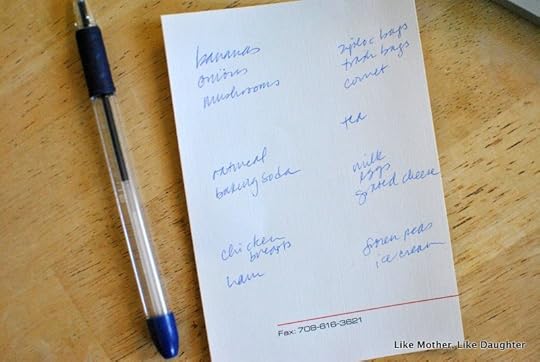 bananas
onions
mushrooms
oatmeal
baking soda
chicken
breasts
ham
ziploc bags
trash bags
comet
tea
milk
eggs
grated cheese
frozen peas
ice cream
Fax: 708-616-3621
Like Mother, Like Daughter